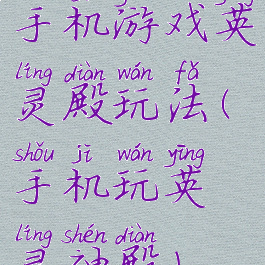 手机游戏英
líng diàn wán fǎ
灵殿玩法(
shǒu jī wán yīng
手机玩英
líng shén diàn
灵神殿)